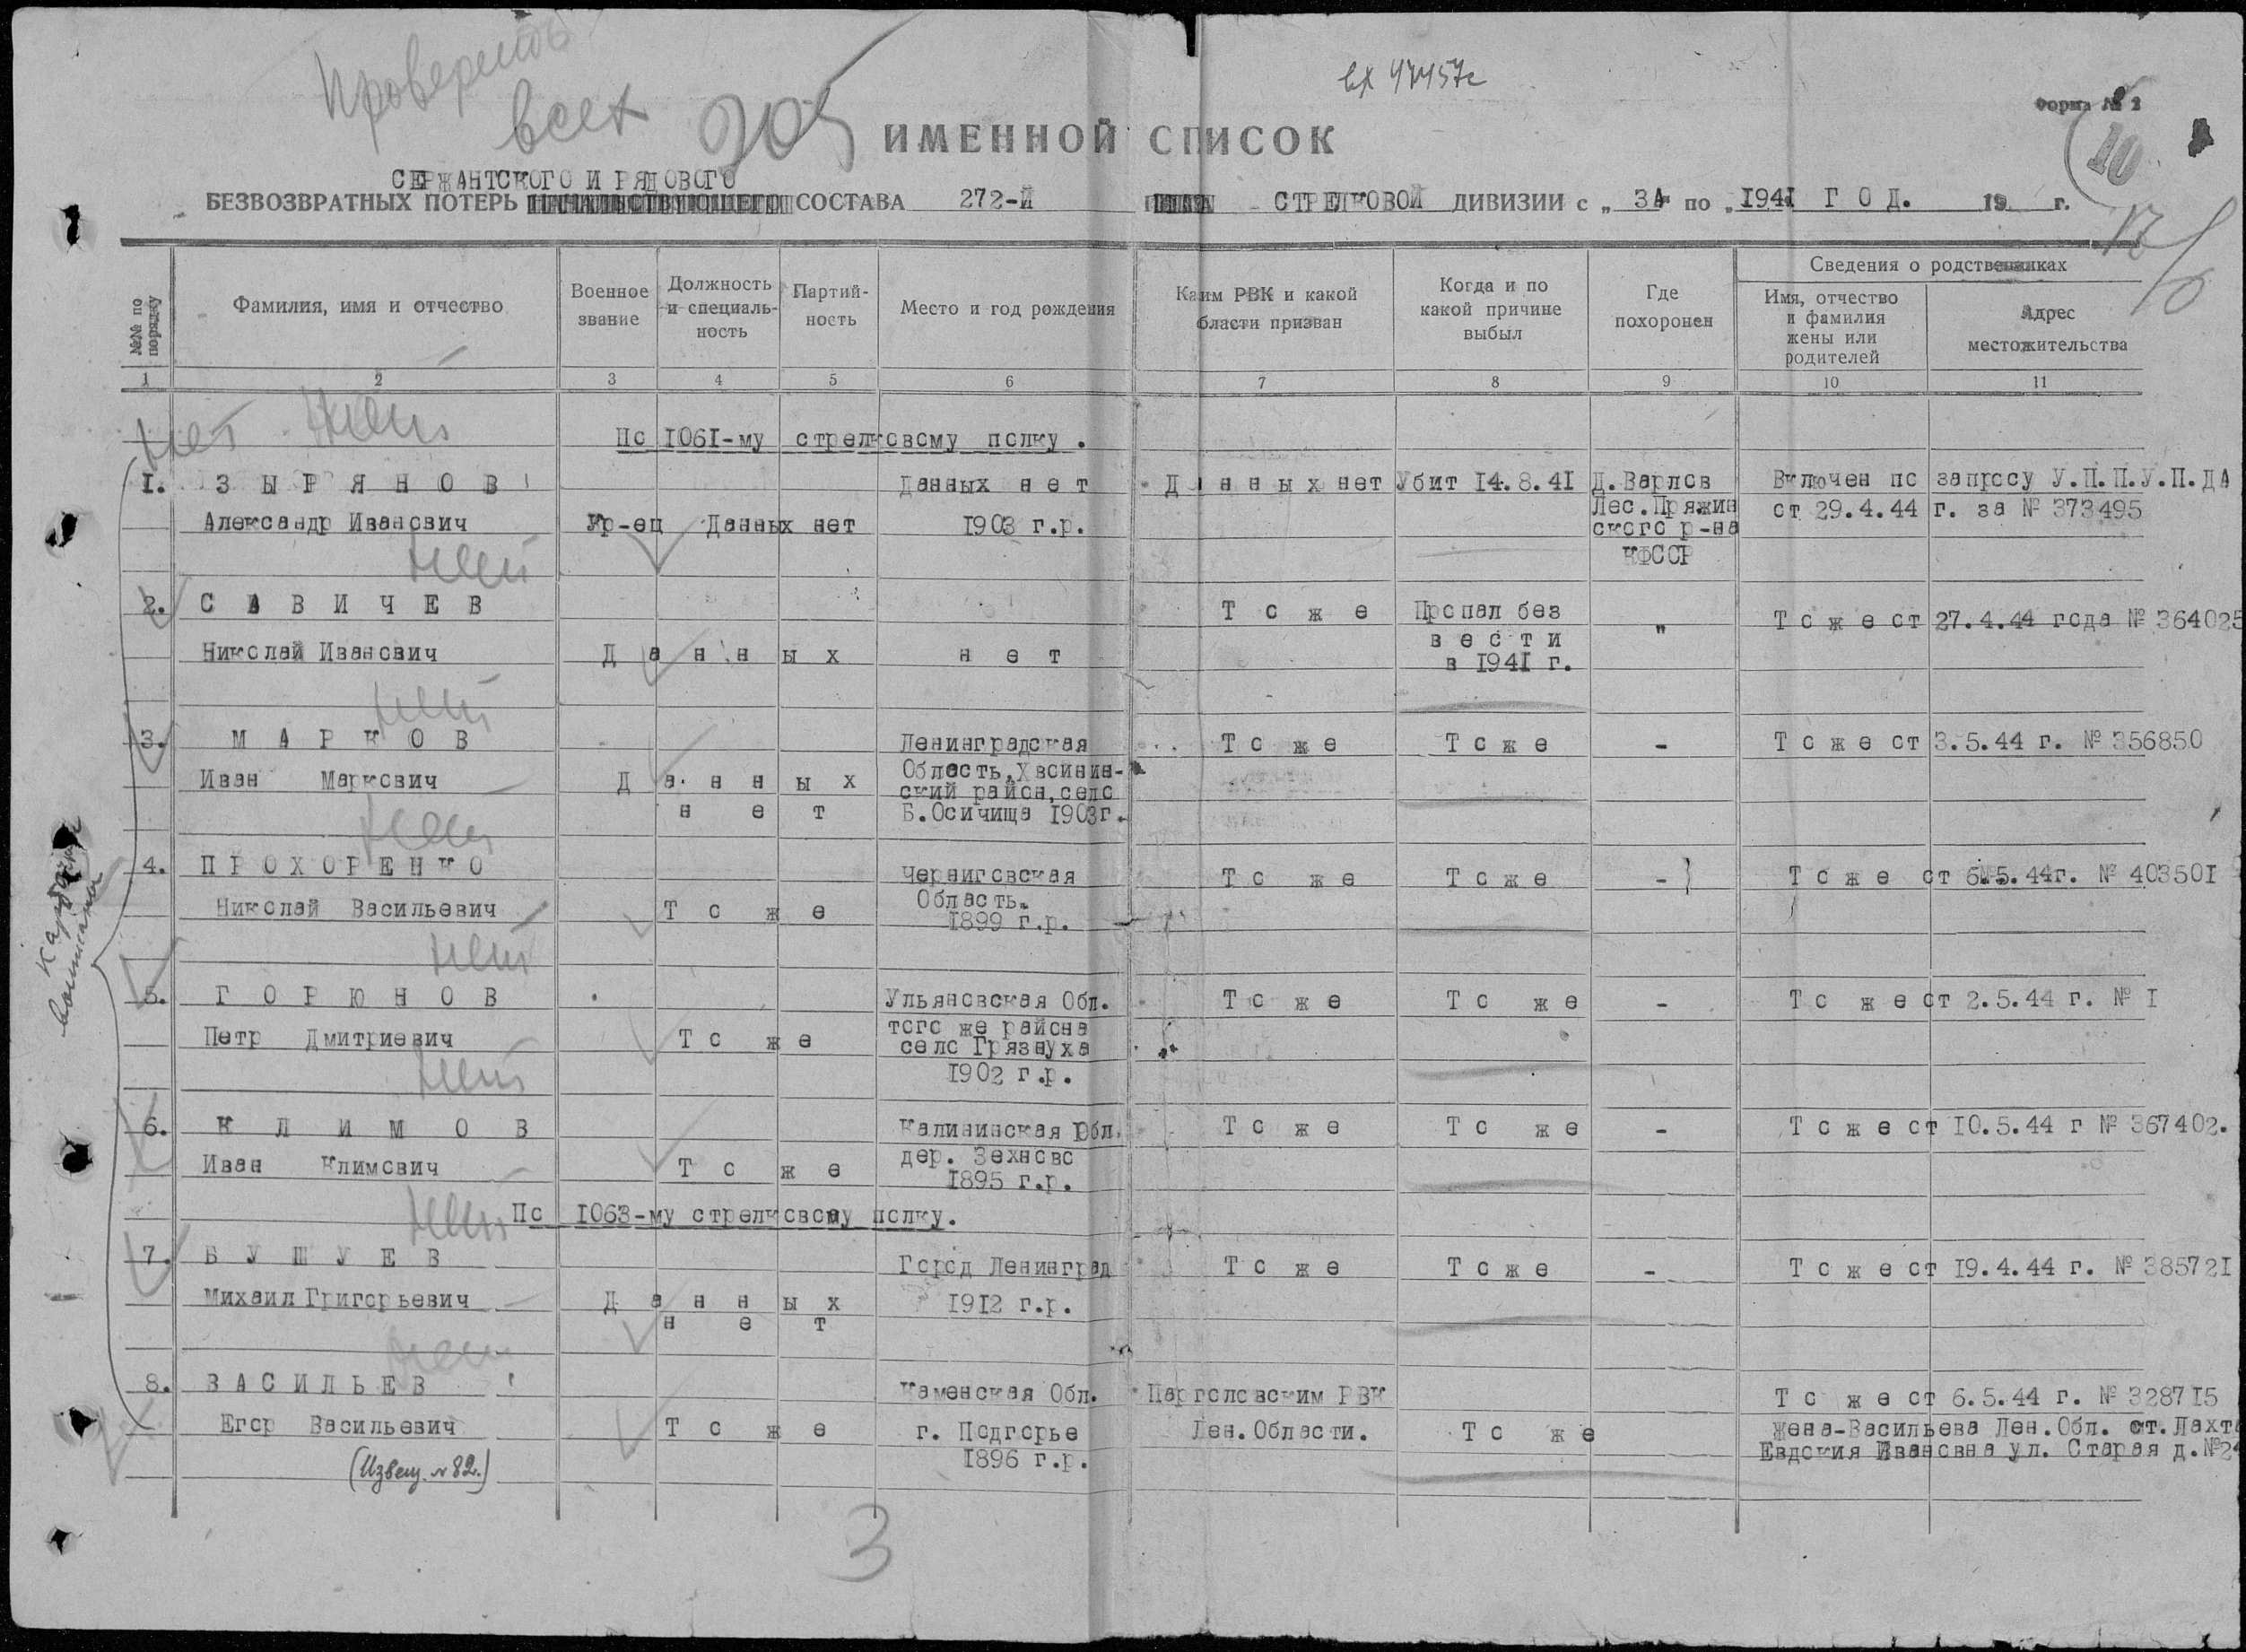 Проверить
всех
вх 47457с
Форма № 2
10
ИМЕННОЙ СПИСОК
СЕРЖАНТСКОГО И РЯДОВОГО
БЕЗВОЗВРАТНЫХ ПОТЕРЬ НАЧАЛЬСТВУЮЩЕГО СОСТАВА 272-Й СТРЕЛКОВОЙ ДИВИЗИИ с „ ЗА " по „ 1941 ГОД. 19 г.
№№ по порядку
Фамилия, имя и отчество
Военное звание
Должность и специаль-ность
Партий-ность
Место и год рождения
Каким РВК и какой
бласти призван
Когда и по какой причине выбыл
Где похоронен
Сведения о родственниках
Имя, отчество и фамилия жены или родителей
Адрес местожительства
1 2 3 4 5 6 7 8 9 10 11
нет нет
По 1061-му стрелковому полку.
1. ЗЫРЯНОВ Данных нет Данных нет Убит 14.8.41 Д.Варлов Включен по запросу У.П.П.У.П.ДА
Александр Иванович Кр-ец Данных нет 1903 г.р. Лес.Пряжин ст 29.4.44 г. за № 373495
ского р-на
КФССР
нет
2. САВИЧЕВ То же Пропал без " То же от 27.4.44 года № 364025
Николай Иванович Данных нет вести
в 1941 г.
нет
3. МАРКОВ Ленинградская То же То же - То же от 3.5.44 г. № 356850
Иван Маркович Данных Область, Хвоинин-
нет ский район, село
Б.Осичища 1903г.
нет
4. ПРОХОРЕНКО Черниговская То же То же - То же от 6.5.44г. № 403501
Николай Васильевич То же Область.
1899 г.р.
нет
5. ГОРЮНОВ Ульяновская Обл. То же То же - То же от 2.5.44 г. № 1
Петр Дмитриевич То же того же района
село Грязнуха
1902 г.р.
нет
6. КЛИМОВ Калининская Обл. То же То же - То же от 10.5.44 г № 367402.
Иван Климович То же дер. Зехново
1895 г.р.
нет
По 1063-му стрелковому полку.
7. БУШУЕВ Город Ленинград То же То же - То же от 19.4.44 г. № 385721
Михаил Григорьевич Данных 1912 г.р.
нет
нет
8. ВАСИЛЬЕВ Каменская Обл. Парголовским РВК То же от 6.5.44 г. № 328715
Егор Васильевич То же г. Подгорье Лен.Области. То же жена-Васильева Лен.Обл. ст.Лахта
1896 г.р. Евдокия Ивановна ул. Старая д.№2
(Извещ. № 82.)
3